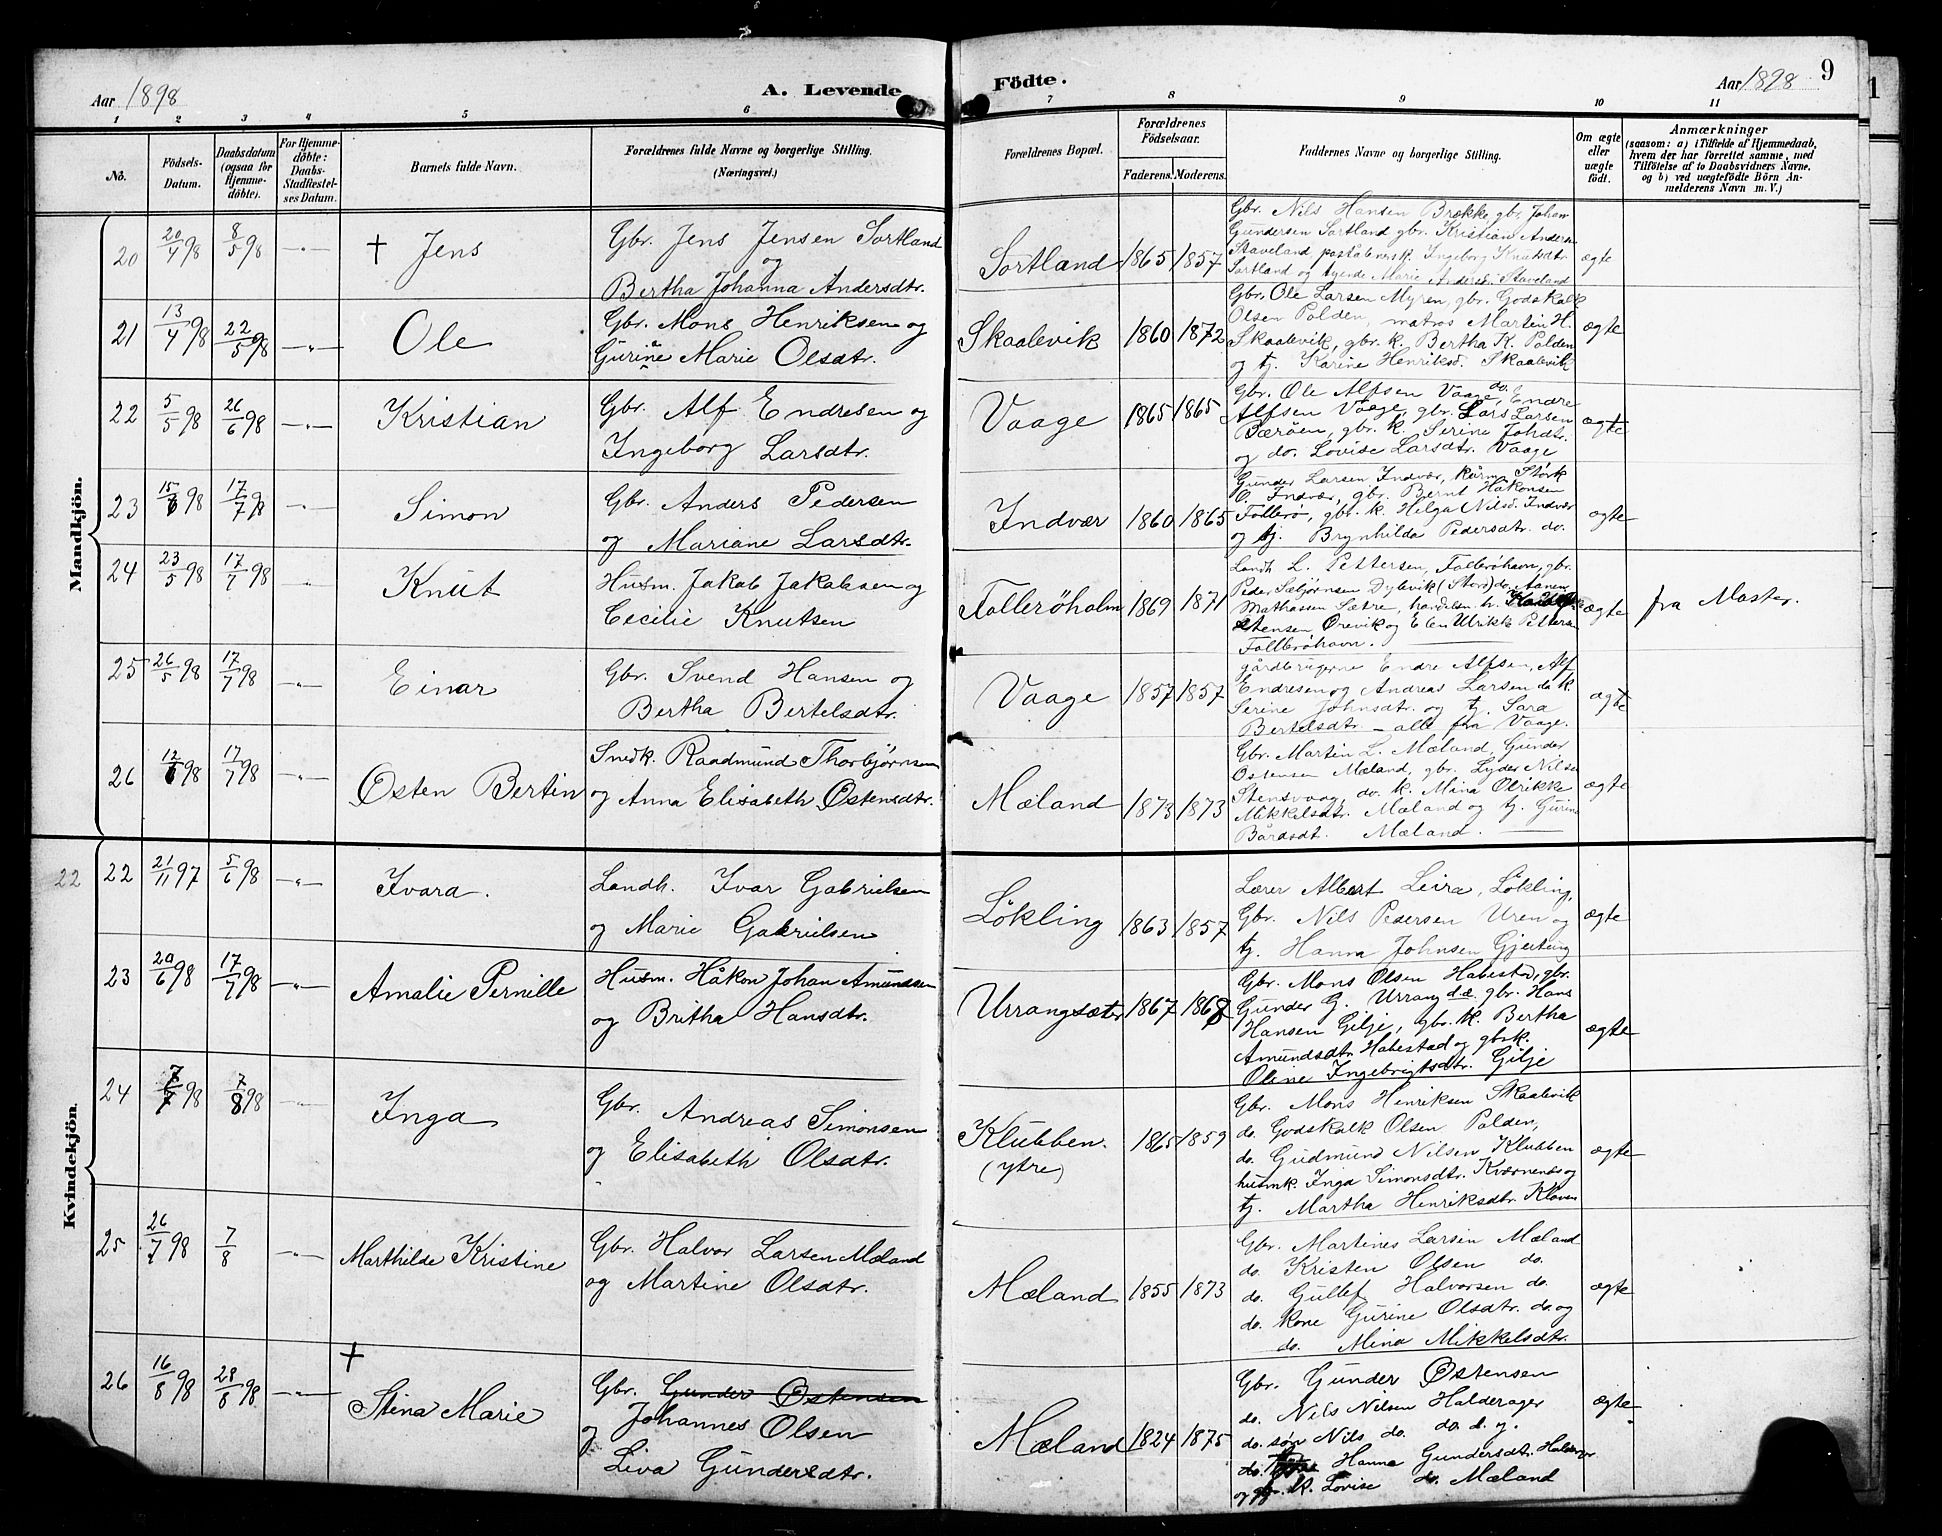 Aar 1898
A. Levende
Födte.
Aar 1898
9
1 2 3 4 5 6 7 8 9 10 11
No.
Födsels-
Datum.
Daabsdatum
(ogsaa for
Hjemme-
döbte).
For Hjemme-
döbte:
Daabs-
Stadfæstel-
ses Datum.
Barnets fulde Navn.
Forældrenes fulde Navne og borgerlige Stilling.
(Næringsvei.)
Forældrenes Bopæl.
Forældrenes
Födselsaar.
Faderens. Moderens.
Faddernes Navne og borgerlige Stilling.
Om ægte
eller
uægte
födt.
Anmærkninger
(saasom: a) i Tilfælde af Hjemmedaab,
hvem der har forrettet samme, med
Tilföielse af to Daabsvidners Navne.
og b) ved uægtefödte Börn An-
melderens Navn m. V.)
Mandkjön.
20 20/4 98 8/5 98 -"- † Jens
Gbr. Jens Jensen Sortland
og
Bertha Johanna Andersdtr.
Sortland 1865 1857
Gbr. Nils Hansen Brække, gbr. Johan
Gundersen Sortland gbr. Kristian Anders
Staveland postaabnersk. Ingeborg Knutsdtr
Sortland og tyende Marie Andersd. Staveland
ægte
21 13/4 98 22/5 98 -"- Ole
Gbr. Mons Henriksen og
Gurine Marie Olsdtr.
Skaalevik 1860 1872
Gbr. Ole Larsen Myren, gbr. Godskalk
Olsen Polden, matros Martin H.
Skaalevik, gbr. k. Bertha K. Polden
og tj. Karine Henriksd. Skaalevik
ægte
22 5/5 98 26/6 98 -"- Kristian
Gbr. Alf Endresen og
Ingeborg Larsdtr.
Vaage 1865 1865
Gbr. Ole Alfsen Vaage, do. Endre
Alfsen Vaage, gbr. Lars Larsen
Bærøen, gbr. k. Serine Johdtr.
og do. Lovise Larsdtr. Vaage
ægte
23 15/6 98 17/7 98 -"- Simon
Gbr. Anders Pedersen
og Mariane Larsdtr.
Indvær 1860 1865
Gunder Larsen Indvær, Størk
O. Indvær, gbr. Bernt Håkonsen
Follerø, gbr. k. Helga Nilsd. Indvær
og tj. Brynhilda Pedersdtr. do.
ægte
24 23/5 98 17/7 98 -"- Knut
Husm. Jakob Jakobsen og
Cecilie Knutsen
Follerøholm 1869 1871
Landh. L. Pettersen, Follerøhavn, gbr.
Peder Sæbjørnsen Dylevik (Stord) do. Aanen
Mathassen Sætre, handelsm. h.
Stensen Orevik og Elen Ulrikk Pettersen
Follerøhavn.
ægte
fra Moster.
25 26/5 98 17/7 98 -"- Einar
Gbr. Svend Hansen og
Bertha Bertelsdtr.
Vaage 1857 1857
gårdbrugerne Endre Alfsen, Alf
Endresen og Andreas Larsen do k.
Serine Johnsdtr. og tj. Sara
Bertelsdtr. – alle fra Vaage.
ægte
26 12/6 98 17/7 98 -"- Østen Bertin
Snedk. Raadmund Thorbjørnsen
og Anna Elisabeth Østensdtr.
Mæland 1873 1873
Gbr. Martin L. Mæland, Gunder
Østensen Mæland, gbr. Lyder Nilsen
Stensvaag, do. k. Mina Olrikke
Mikkelsdtr. Mæland og tj. Gurine
Bårdsdt. Mæland.
ægte
Kvindekjön.
22
22 21/11 97 5/6 98 -"- Ivara.
Landh. Ivar Gabrielsen
og Marie Gabrielsen
Løkling 1863 1857
Lærer Albert Leira, Løkling,
Gbr. Nils Pedersen Uren og
tj. Hanna Johnsen Gjerteng
ægte
23 20/6 98 17/7 98 -"- Amalie Pernille
Husm. Håkon Johan Amundsen
og Britha Hansdtr.
Urrangsæter 1867 1868
Gbr. Mons Olsen Habestad, gbr.
Gunder G. Urrang d.æ. gbr. Hans
Hansen Gilje, gbr. k. Bertha
Amundsdtr. Habestad og gbrk.
Oline Ingebrigtsdtr. Gilje
ægte
24 7/7 98 7/8 98 Inga
Gbr. Andreas Simonsen
og Elisabeth Olsdtr.
Klubben.
(ytre)
1865 1859
Gbr. Mons Henriksen Skaalevik
do. Godskalk Olsen Polden,
do. Gudmund Nilsen Klubben
husmk. Inga Simonsdtr. Kværnenæs og
tj. Martha Henriksdtr. Kloven
ægte
25 26/7 98 7/8 -"- Marthilde Kristine
Gbr. Halvor Larsen Mæland
og Martine Olsdtr.
Mæland 1855 1873
Gbr. Martines Larsen Mæland
do. Kristen Olsen do.
do. Gullef Halvorsen do.
do. Kone Gurine Olsdtr. do. og
do. Mina Mikkelsdtr.
ægte
26 16/8 98 28/8 98 -"- † Stina Marie
Gbr. Gunder Østensen
og Johannes Olsen
Liva Gundersdtr.
Mæland 1824 1875
Gbr. Gunder Østensen
do. Nils Nilsen Halderager
do. søn Nils do. do. d. y.
do. Hanna Gundersdtr. Halderager
og gbr. k. Lovise do. Mæland
ægte